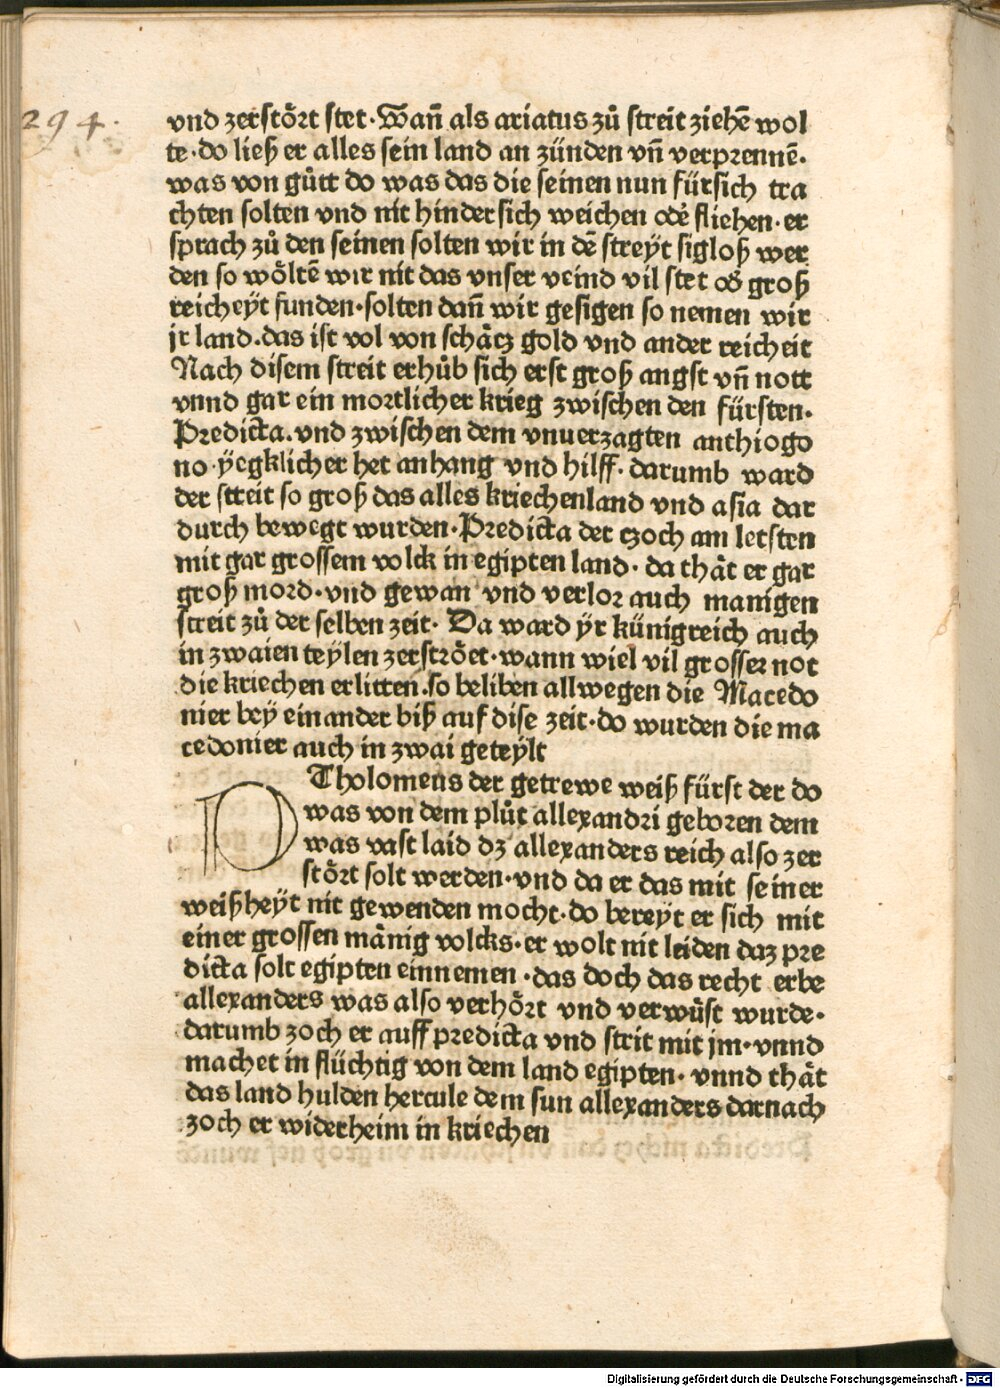 294.
vnd zerstoͤrt stet·Wañ als ariatus zuͦ streit ziehē wol
te·do ließ er alles sein land an zünden vñ verprennē.
was von guͤtt do was das die seinen nun fürsich tra
chten solten vnd nit hindersich weichen odeͬ fliehen·er
sprach zuͦ den seinen solten wir in dē streyt sigloß wer
den so woͤltē wir nit das vnser veind vil stet odͤ groß
reicheyt funden·solten dañ wir gesigen so nemen wir
jr land.das ist vol von schaͤtz gold vnd ander reicheit
Nach disem streit erhuͦb sich erst groß angst vñ nott
vnnd gar ein mortlicher krieg zwischen den fürsten.
Predicta.vnd zwischen dem vnuerzagten anthiogo
no·ÿegklicher het anhang vnd hilff·darumb ward
der streit so groß das alles kriechenland vnd asia dar
durch bewegt wurden·Predicta der tzoch am letsten
mit gar grossem volck in egipten land·da thaͤt er gar
groß mord·vnd gewan vnd verlor auch manigen
streit zuͦ der selben zeit·Da ward ÿr künigreich auch
in zwaien teylen zerstroͤet·wann wiel vil grosser not
die kriechen erlitten.so beliben allwegen die Macedo
nier beÿ einander biß auf dise zeit·do wurden die ma
cedonier auch in zwai geteÿlt
P Tholomeus der getrewe weiß fürst der do
was von dem pluͦt allexandri geboren dem
was vast laid dz allexanders reich also zer
stoͤrt solt werden·vnd da er das mit seiner
weißheÿt nit gewenden mocht·do bereÿt er sich mit
einer grossen maͤnig volcks·er wolt nit leiden daz pre
dicta solt egipten einnemen·das doch das recht erbe
allexanders was also verhoͤrt vnd verwuͤst wurde·
darumb zoch er auff predicta vnd strit mit jm·vnnd
machet in flüchtig von dem land egipten·vnnd thaͤt
das land hulden hercule dem sun allexanders darnach
zoch er widerheim in kriechen
Digitalisierung gefördert durch die Deutsche Forschungsgemeinschaft · DFG